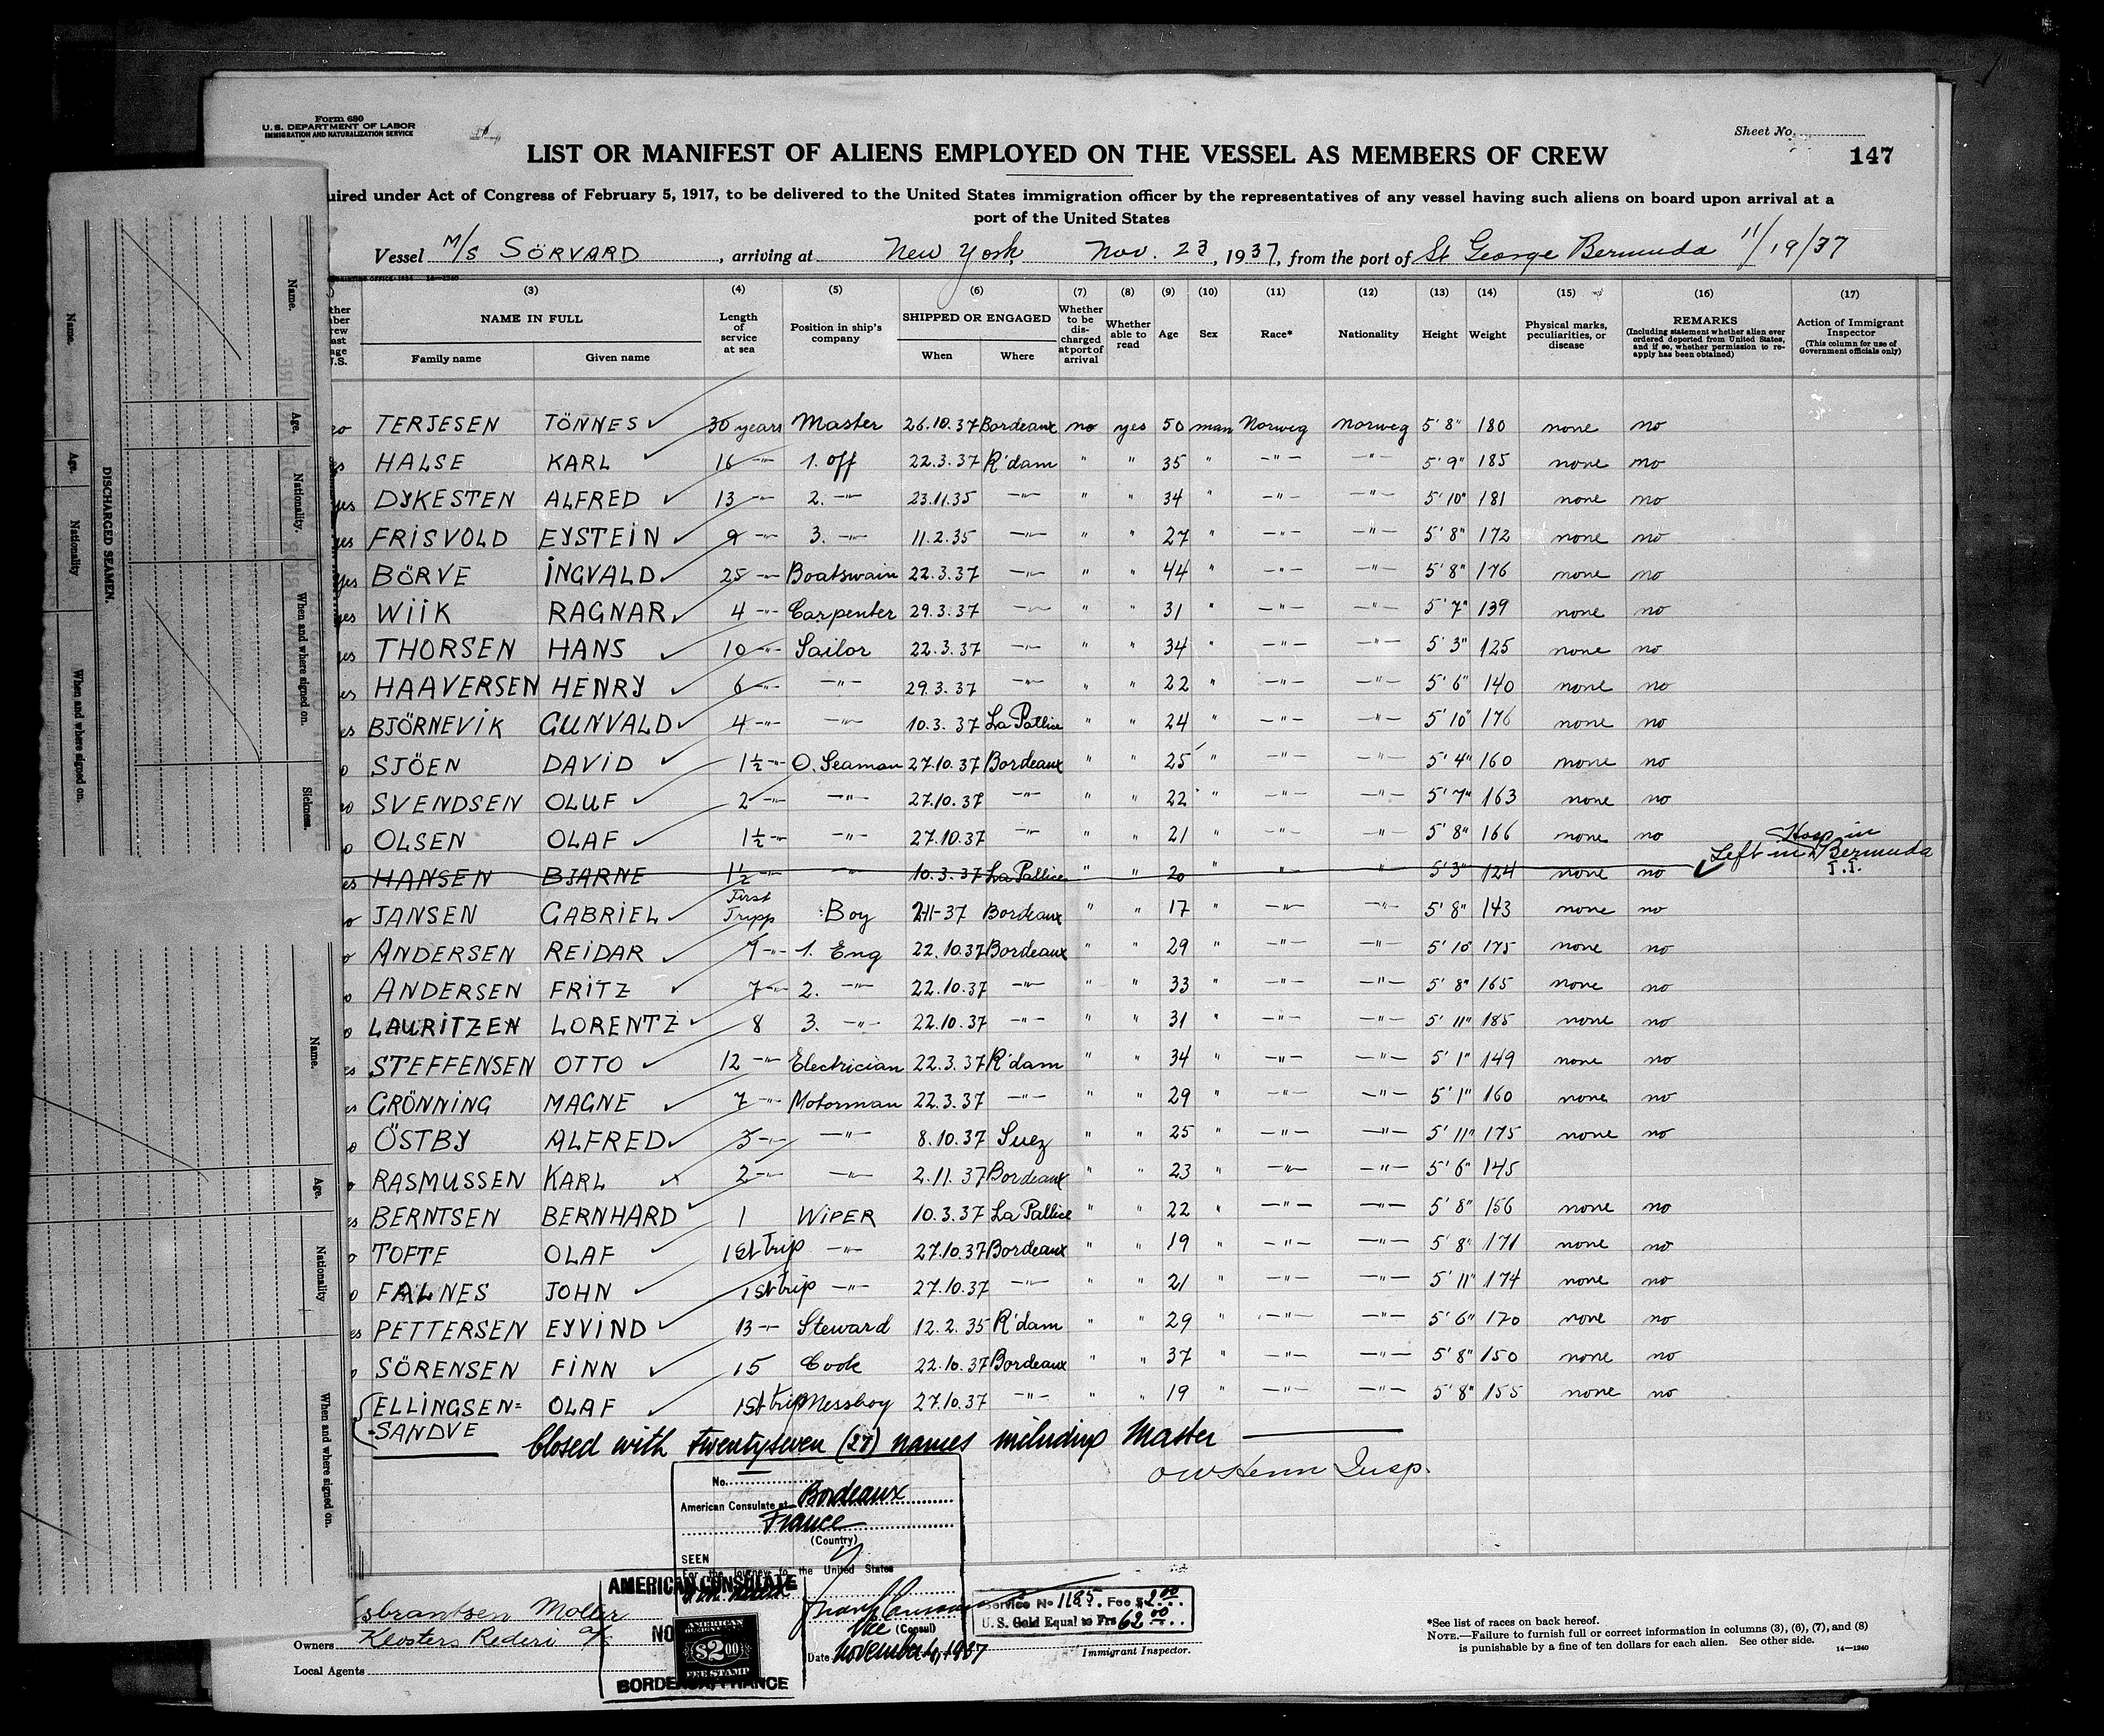 Form 680
U. S. DEPARTMENT OF LABOR
IMMIGRATION AND NATURALIZATION SERVICE
Sheet No.
147
LIST OR MANIFEST OF ALIENS EMPLOYED ON THE VESSEL AS MEMBERS OF CREW
uired under Act of Congress of February 5, 1917, to be delivered to the United States immigration officer by the representatives of any vessel having such aliens on board upon arrival at a
port of the United States
Vessel M/S SÖRVARD, arriving at New York Nov. 23, 1937, from the port of St George Bermuda 11/19/37
(3) (4) (5) (6) (7) (8) (9) (10) (11) (12) (13) (14) (15) (16) (17)
NAME IN FULL
Family name Given name
Length of service at sea
Position in ship's company
SHIPPED OR ENGAGED
When Where
Whether to be discharged at port of arrival
Whether able to read
Age Sex Race* Nationality Height Weight
Physical marks, peculiarities, or disease
REMARKS
(Including statement whether alien ever ordered deported from United States, and if so, whether permission to re-apply has been obtained)
Action of Immigrant Inspector
(This column for use of Government officials only)
TERJESEN TÖNNES 30 years Master 26.10.37 Bordeaux no yes 50 man Norweg Norweg 5'8" 180 none no
HALSE KARL 16 -"- 1. off 22.3.37 R'dam " " 35 " -"- -"- 5'9" 185 none no
yes DYKESTEN ALFRED 13 -"- 2. -"- 23.11.35 -"- " " 34 " -"- -"- 5'10" 181 none no
yes FRISVOLD EYSTEIN 9 -"- 3. -"- 11.2.35 -"- " " 27 " -"- -"- 5'8" 172 none no
yes BÖRVE INGVALD 25 -"- Boatswain 22.3.37 -"- " " 44 " -"- -"- 5'8" 176 none no
yes WIIK RAGNAR 4 -"- Carpenter 29.3.37 -"- " " 31 " -"- -"- 5'7" 139 none no
yes THORSEN HANS 10 -"- Sailor 22.3.37 -"- " " 34 " -"- -"- 5'3" 125 none no
es HAAVERSEN HENRY 6 -"- -"- 29.3.37 -"- " " 22 " -"- -"- 5'6" 140 none no
es BJÖRNEVIK GUNVALD 4 -"- -"- 10.3.37 La Pallice " " 24 " -"- -"- 5'10" 176 none no
o SJÖEN DAVID 1½ -"- O. Seaman 27.10.37 Bordeaux " " 25 " -"- -"- 5'4" 160 none no
o SVENDSEN OLUF 2 -"- -"- 27.10.37 -"- " " 22 " -"- -"- 5'7" 163 none no
o OLSEN OLAF 1½ -"- -"- 27.10.37 -"- " " 21 " -"- -"- 5'8" 166 none no
es HANSEN BJARNE 1½ -"- -"- 10.3.37 La Pallice " " 20 " " -"- 5'3" 124 none no Left in Hosp in Bermuda T.I.
o JANSEN GABRIEL First Tripp Boy 2-11-37 Bordeaux " " 17 " -"- -"- 5'8" 143 none no
o ANDERSEN REIDAR 7 -"- 1. Eng 22.10.37 Bordeaux " " 29 " -"- -"- 5'10 175 none no
o ANDERSEN FRITZ 7 -"- 2. -"- 22.10.37 -"- " " 33 " -"- -"- 5'8" 165 none no
o LAURITZEN LORENTZ 8 3. -"- 22.10.37 -"- " " 31 " -"- -"- 5'11" 185 none no
es STEFFENSEN OTTO 12 -"- Electrician 22.3.37 R'dam " " 34 " -"- -"- 5'1" 149 none no
es GRÖNNING MAGNE 7 -"- Motorman 22.3.37 -"- " " 29 " -"- -"- 5'1" 160 none no
o ÖSTBY ALFRED 5 -"- -"- 8.10.37 Suez " " 25 " -"- -"- 5'11" 175 none no
o RASMUSSEN KARL 2 -"- -"- 2.11.37 Bordeaux " " 23 " -"- -"- 5'6" 145
es BERNTSEN BERNHARD 1 WIPER 10.3.37 La Pallice " " 22 " -"- -"- 5'8" 156 none no
o TOFTE OLAF 1st trip -"- 27.10.37 Bordeaux " " 19 " -"- -"- 5'8" 171 none no
o FALNES JOHN 1st trip -"- 27.10.37 -"- " " 21 " -"- -"- 5'11" 174 none no
es PETTERSEN EYVIND 13 -"- Steward 12.2.35 R'dam " " 29 " -"- -"- 5'6" 170 none no
o SÖRENSEN FINN 15 Cook 22.10.37 Bordeaux " " 37 " -"- -"- 5'8" 150 none no
ELLINGSEN= OLAF 1st trip Messboy 27.10.37 -"- " " 19 " -"- -"- 5'8" 155 none no
-SANDVE
Closed with twentyseven (27) names including Master
Insp.
No.
American Consulate at Bordeaux
France
(Country)
SEEN
For the journey to the United States
AMERICAN CONSULATE
Vice (Consul)
Date November 4, 1937
AMERICAN
$2.00
FEE STAMP
BORDEAUX, FRANCE
Service No 1185. Fee $2.00
U.S. Gold Equal to Frs 62.00
Immigrant Inspector.
Moller
Owners Klosters Rederi A/S
Local Agents
*See list of races on back hereof.
NOTE.—Failure to furnish full or correct information in columns (3), (6), (7), and (8)
is punishable by a fine of ten dollars for each alien. See other side.
14—1240
DISCHARGED SEAMEN.
Name. Age. Nationality When and where signed on.
Name. Age. Nationality. When and where signed on. Sickness.
Name. Age. Nationality When and where signed on.